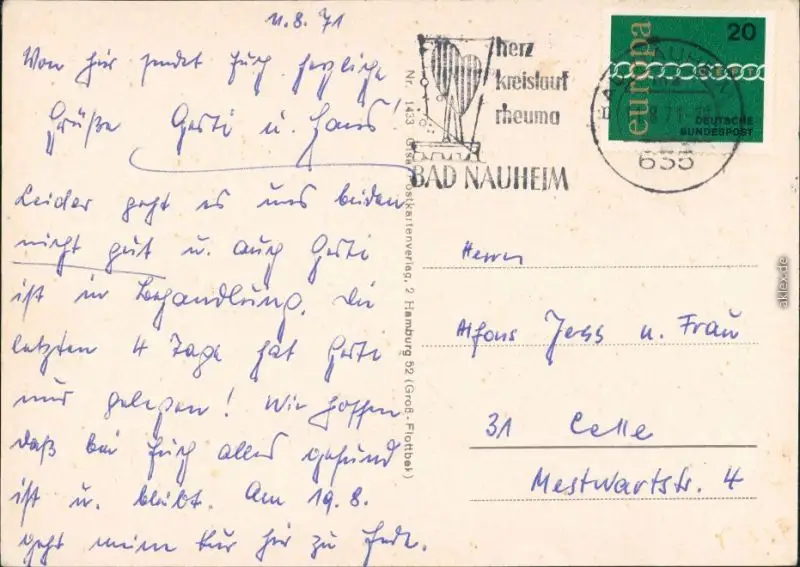 11.8.71
Von hier sendet Euch herzliche
Grüße Gerti u. Hans!
Leider geht es uns beiden
nicht gut u. auch Gerti
ist in Behandlung. Die
letzten 4 Tage hat Gerti
nur gelegen! Wir hoffen
daß bei Euch alles gesund
ist u. bleibt. Am 19.8.
geht meine Kur hier zu Ende.
herz
kreislauf
rheuma
BAD NAUHEIM
europa
20
CEPT
DEUTSCHE
BUNDESPOST
635
Nr. 1433 Postkartenverlag, 2 Hamburg 52 (Groß-Flottbek)
Herrn
Alfons Jess u. Frau
31 Celle
Mestwartstr. 4
aklex.de